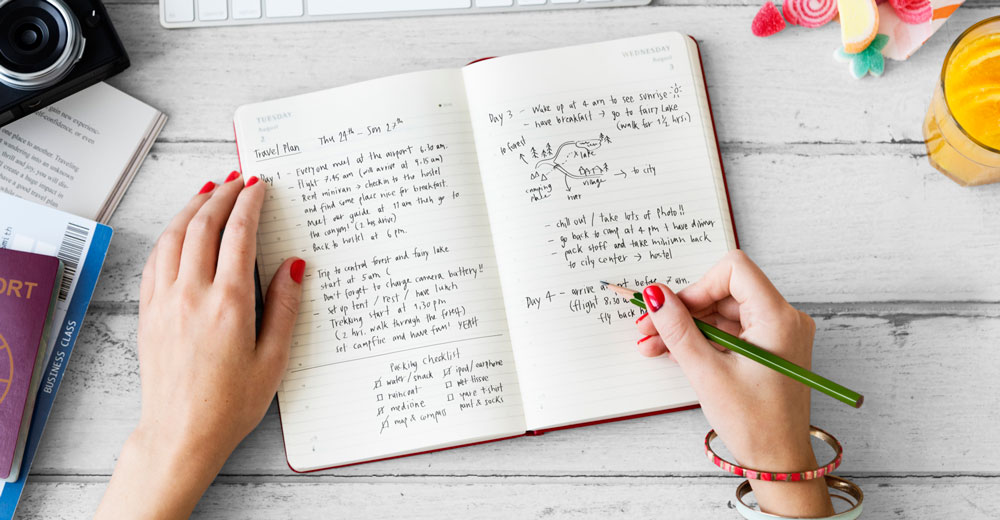 TUESDAY
August
2
Thu 24th - Son 27th
Travel Plan
Day 1 - Everyone meet at the airport 6.30 am.
- flight 7.45 am (will arrive at 9.15 am)
- Rent minivan → check in to the hostel
and find some place nice for breakfast.
- Meet our guide at 11 am then go to
the canyon! (2 hrs drive)
- Back to hostel at 6 pm.
- Trip to central forest and fairy lake
start at 5 am (
- Don't forget to charge camera battery!!
- Set up tent / rest / have lunch
- Trekking start at 1.30 pm
(2 hrs. walk through the forest)
- set campfire and have fun! YEAH
Packing Checklist
water/snack
raincoat
medicine
map & compass
ipod/earphone
wet tissue
spare t-shirt
pant & socks
WEDNESDAY
August
3
Day 3 - Wake up at 4 am to see sunrise
- have breakfast → go to fairy lake
(walk for 1 1/2 hrs)
to forest
lake
camping
place
village
river
→ to city
- chill out / take lots of photo!!
- go back to camp at 4 pm + have dinner
- pack stuff and take minivan back
to city center → hostel
Day 4 - arrive before 7 am.
(flight 8.30
fly back
new experi-
confidence, or even
Traveling
wandering into an
thrill and fun, you will dis-
create a huge impact
a good travel plan
mith
BUSINESS CLASS
PORT